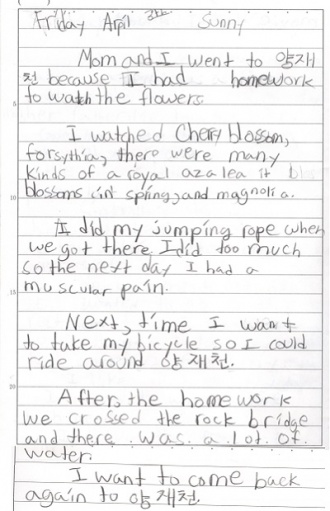 Friday April 3th Sunny
Mom and I went to 양재
천 because I had homework
to watch the flowers
I watched Cherry blossom,
forsythia, there were many
kinds of a royal azalea it bl
blossoms int spring, and magnolia.
I did my jumping rope when
we got there, I did too much
so the next day I had a
muscular pain.
Next, time I want
to take my bicycle so I could
ride around 양재천.
After the homework
we crossed the rock bridge
and there was a lot of
water.
I want to come back
again to 양재천.